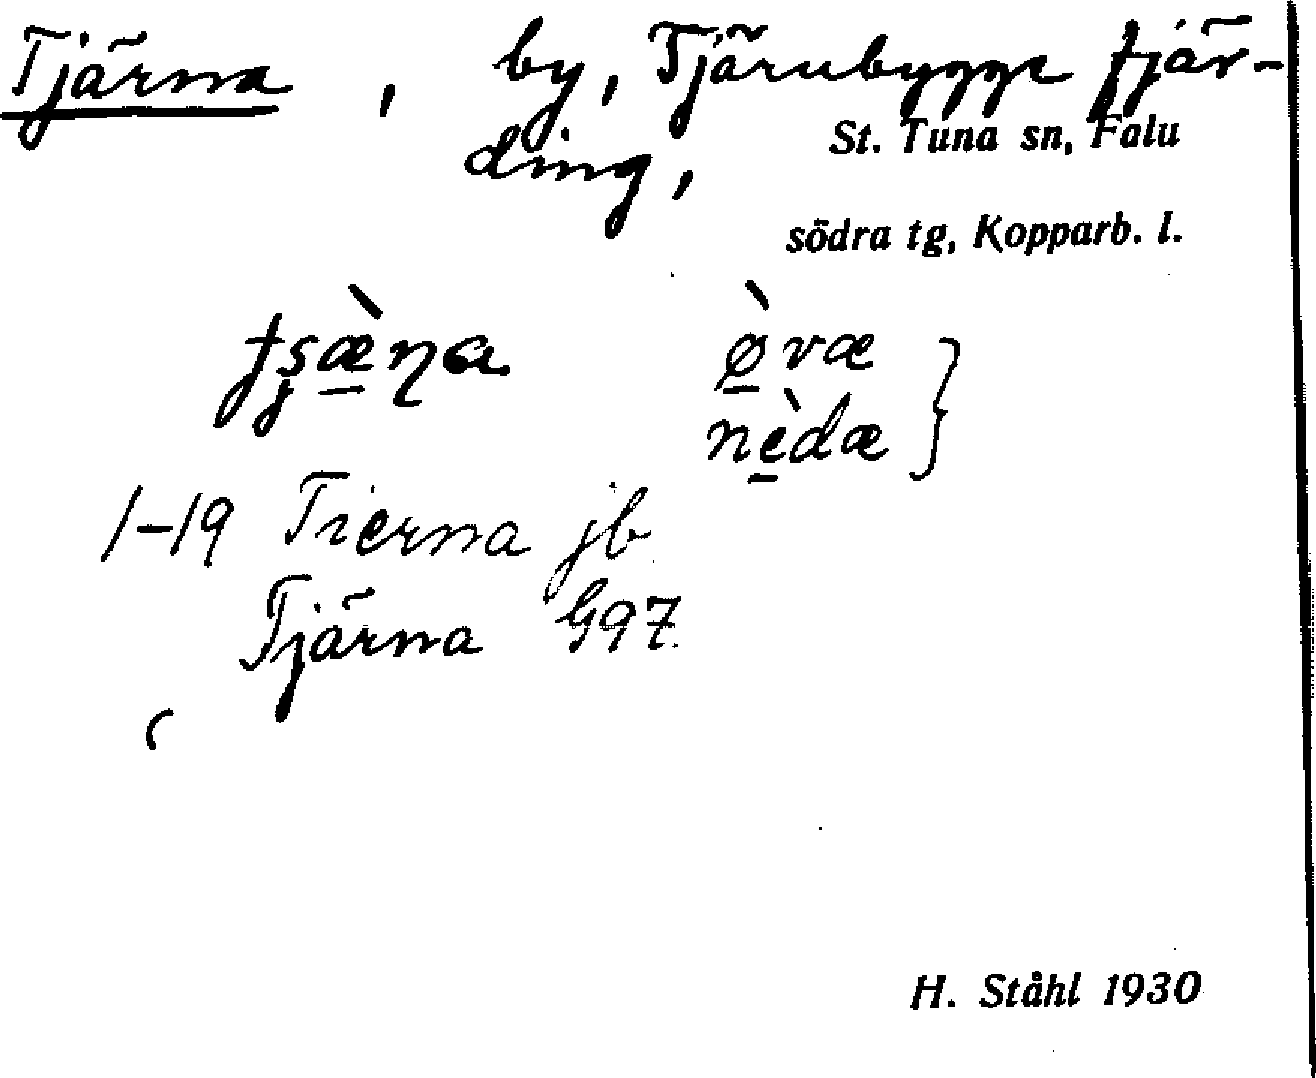 Tjärna, by, Tjärnbygge fjär-
ding,
St. Tuna sn, Falu
södra tg, Kopparb. l.
ø̠̀væ
nè̠dæ }
1-19 Tierna jb
Tjärna G97.
H. Ståhl 1930